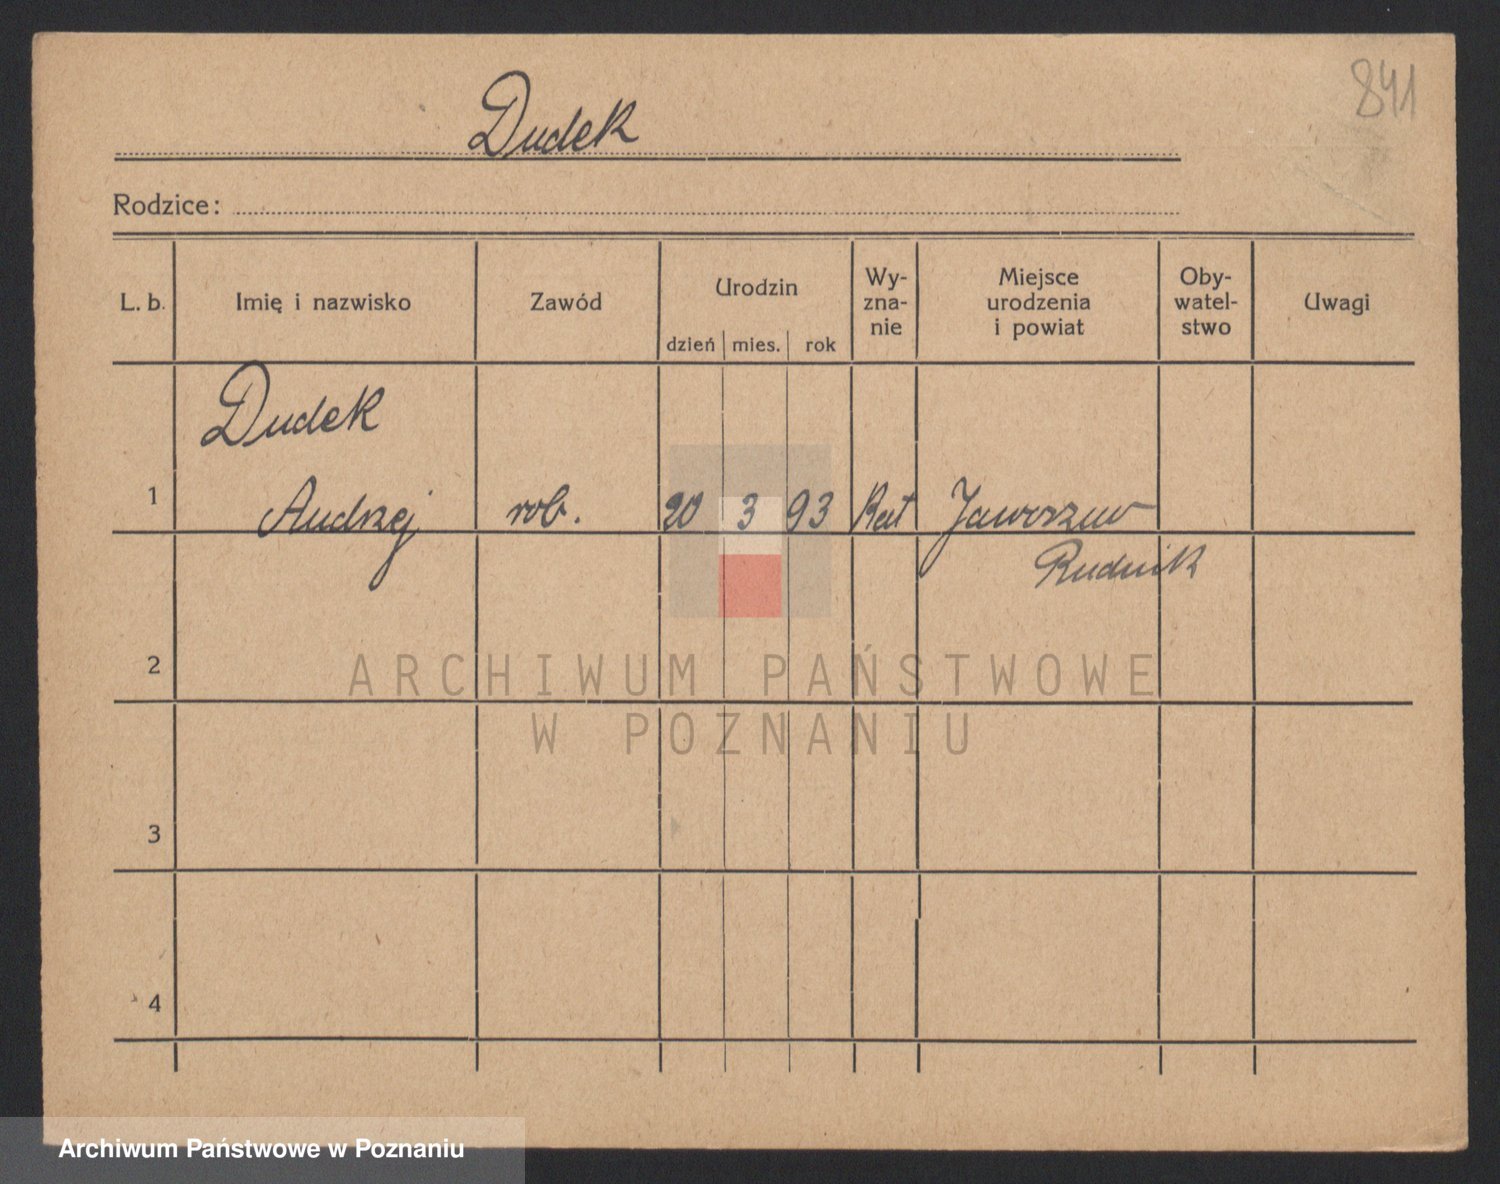 841
Dudek
Rodzice:
L. b. Imię i nazwisko Zawód Urodzin dzień mies. rok Wy-zna-nie Miejsce urodzenia i powiat Oby-watel-stwo Uwagi
Dudek
1 Andrzej rob. 20 3 93 Kat Jaworzno
Rudnik
2
3
4
ARCHIWUM PAŃSTWOWE
W POZNANIU
Archiwum Państwowe w Poznaniu